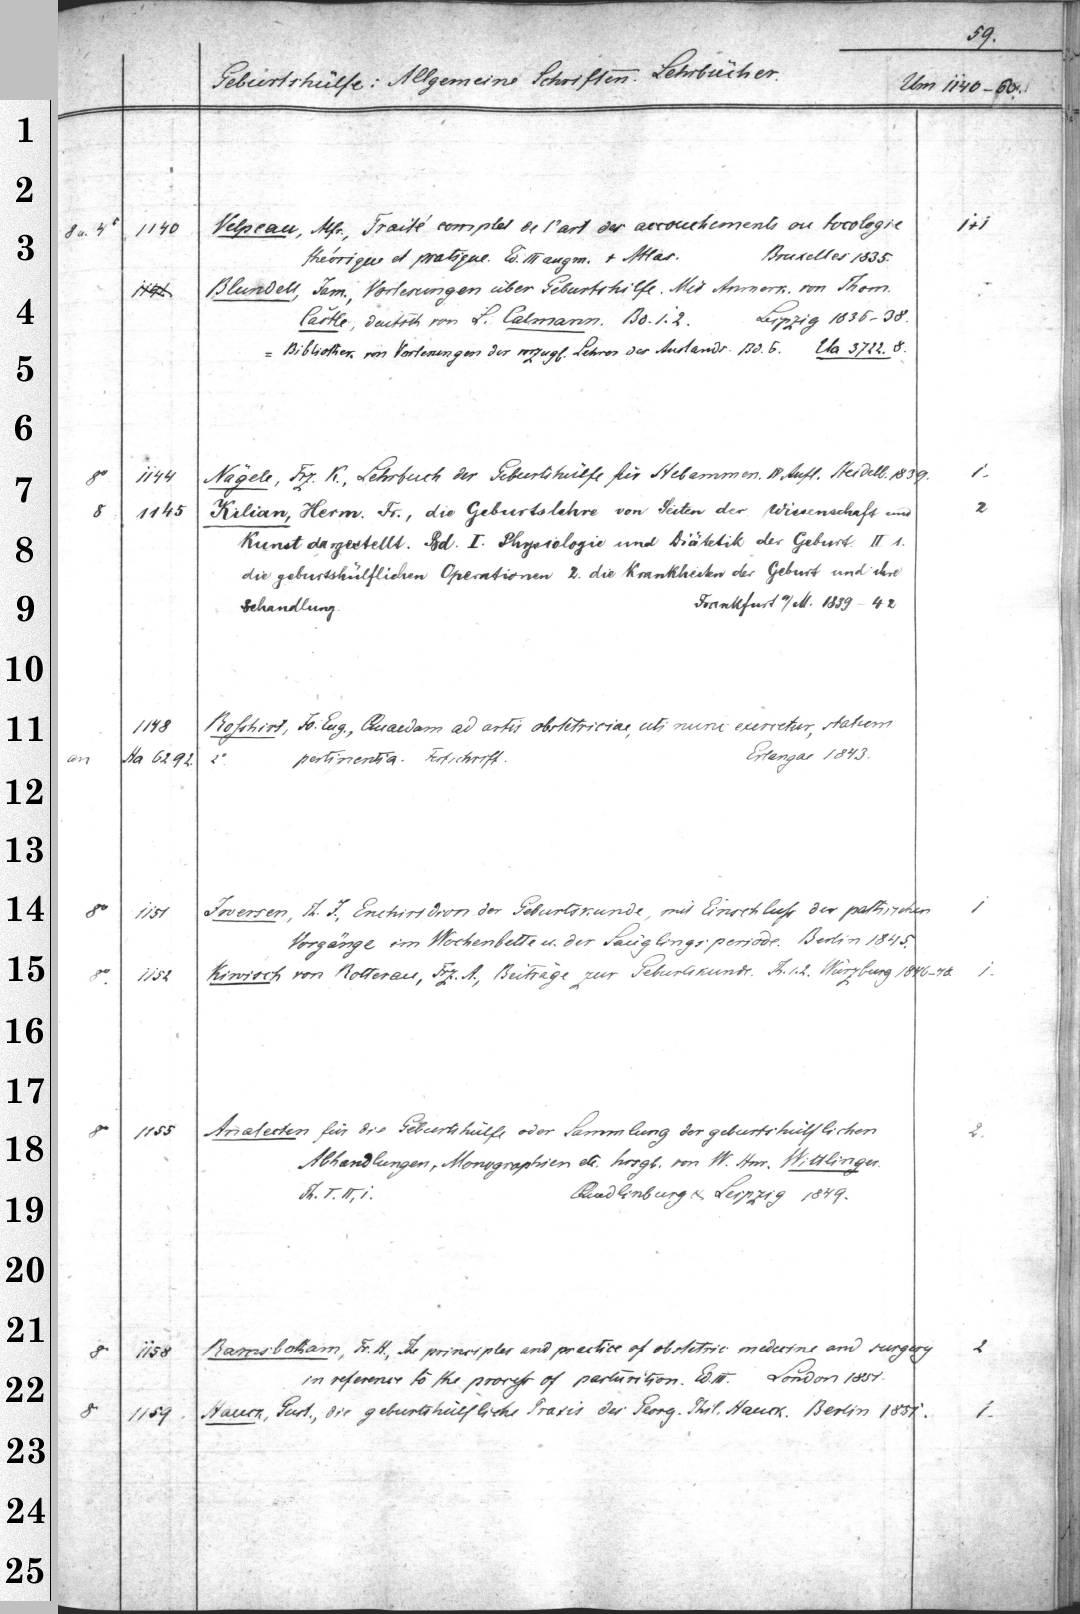 59.
Geburtshülfe: Allgemeine Schriften. Lehrbücher. Um 1140-60.
1
2
8 u. 4° 1140 Velpeau, Alfr., Traité complet de l'art des accouchements ou tocologie 1+1
3
théorique et pratique. Ed. III augm. + Atlas. Bruxelles 1835.
4
Blundell, Jam., Vorlesungen über Geburtshilfe. Mit Anmerk. von Thom.
Castle, deutsch von L. Calmann. Bd. 1.2. Leipzig 1836-38.
5
= Bibliothek von Vorlesungen der vorzügl. Lehrer des Auslands. Bd. 6. Ua 3722. 8.
6
8° 1144 Nägele, Frz. K., Lehrbuch der Geburtshülfe für Hebammen. IV. Aufl. Heidelb. 1839. 1.
7
8 1145 Kilian, Herm. Fr., die Geburtslehre von Seiten der Wissenschaft und 2
8
Kunst dargestellt. Bd. I. Physiologie und Diätetik der Geburt II 1.
die geburtshülflichen Operationen 2. die Krankheiten der Geburt und ihre
9
Behandlung. Frankfurt a/M. 1839-42
10
11
1148 Rosshirt, Jo. Eug., Quaedam ad artis obstetriciae, uti nunc exercetur, statum
an Ha 6292. 2° pertinentia. Festschrift. Erlangae 1843.
12
13
14
8° 1151 Iversen, Th. J., Enchiridion der Geburtskunde, mit Einschluss der pathischen 1
Vorgänge im Wochenbette u. der Säuglingsperiode. Berlin 1845.
15
8°. 1152 Kiwisch von Rotterau, Frz. A., Beiträge zur Geburtskunde. Th. 1.2. Würzburg 1846-48. 1.
16
17
8° 1155 Analecten für die Geburtshülfe oder Sammlung der geburtshülflichen 2.
18
Abhandlungen, Monographien etc. hrsgb. von W. Hnr. Wittlinger.
Th. I. II, 1. Quedlinburg & Leipzig 1849.
19
20
21
8° 1158 Ramsbotham, Fr. H., The principles and practice of obstetric medecine and surgery 2
22
in reference to the process of parturition. Ed. III. London 1851.
8 1159. Hauck, Gust., die geburtshülfliche Praxis des Georg. Phil. Hauck. Berlin 1851. 1.
23
24
25